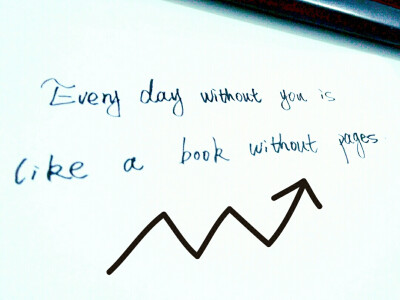 Every day without you is
like a book without pages.